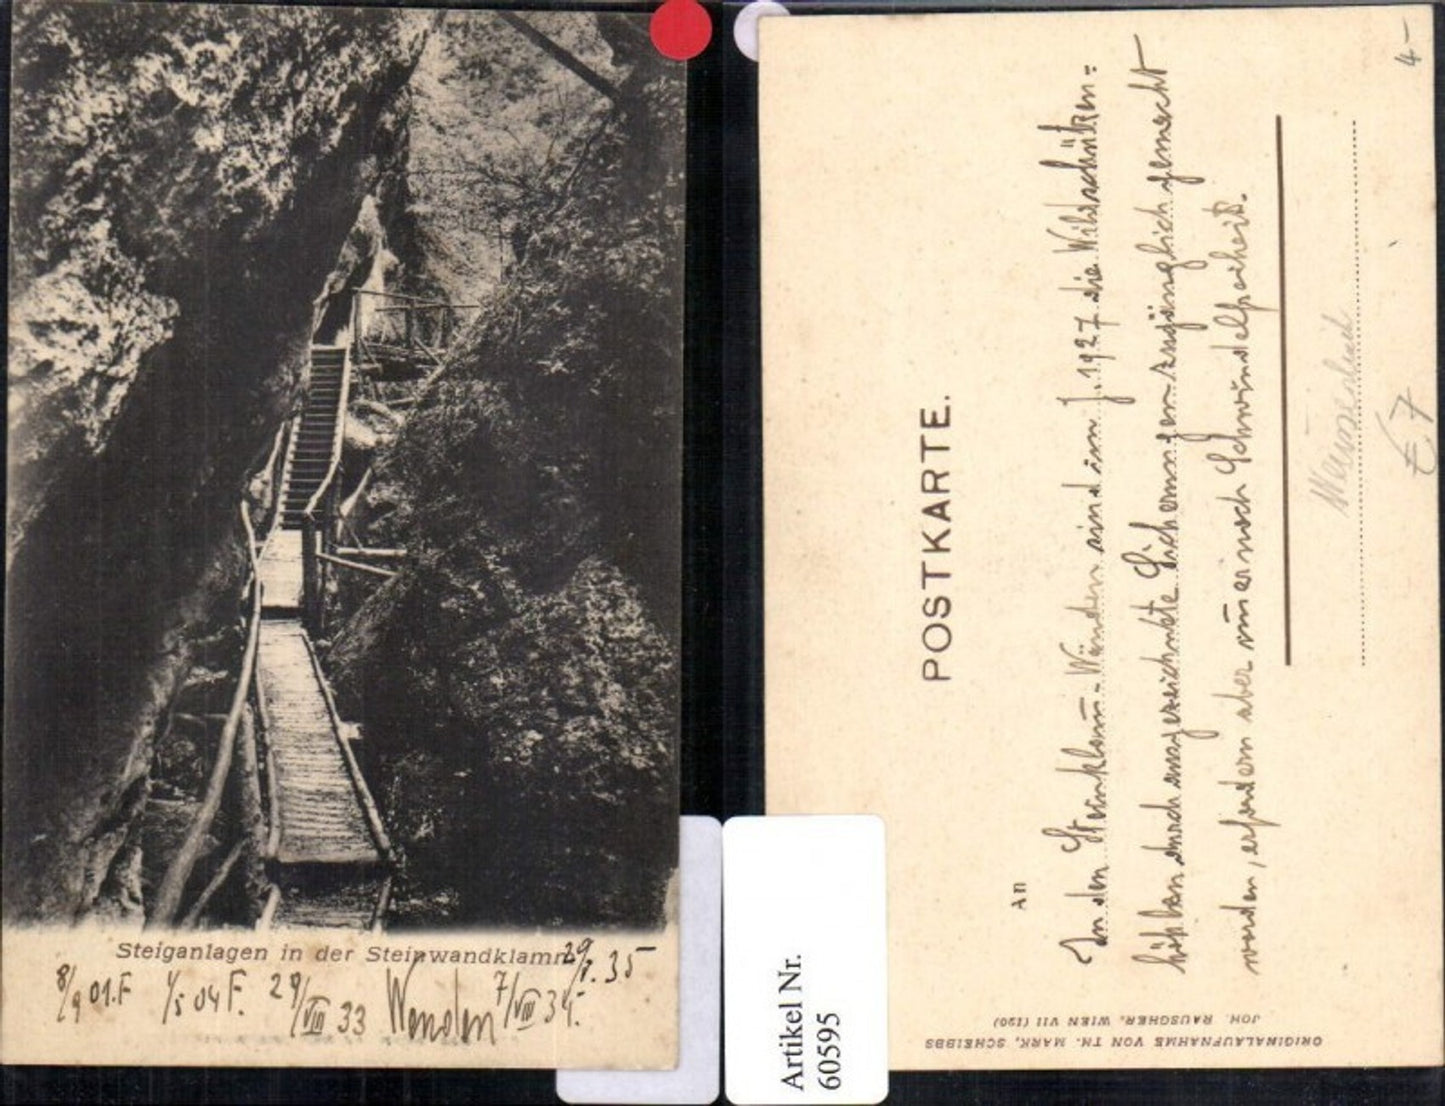 Steiganlagen in der Steinwandklamm
29/V. 35
8/9 01.F 1/5 04 F. 29/VIII 33 Wenden 7/VIII 34.
POSTKARTE.
An
In den Steinklamm-Wänden sind im J. 1927 die Wildschützen=
höhlen durch ausgezeichnete Sicherungen zugänglich gemacht
worden, erfordern aber immer noch Schwindelfreiheit.
4-
€ 7
ORIGINALAUFNAHME VON TH. MARK, SCHEIBBS
JOH. RAUSCHER, WIEN VII (120)
Artikel Nr.
60595